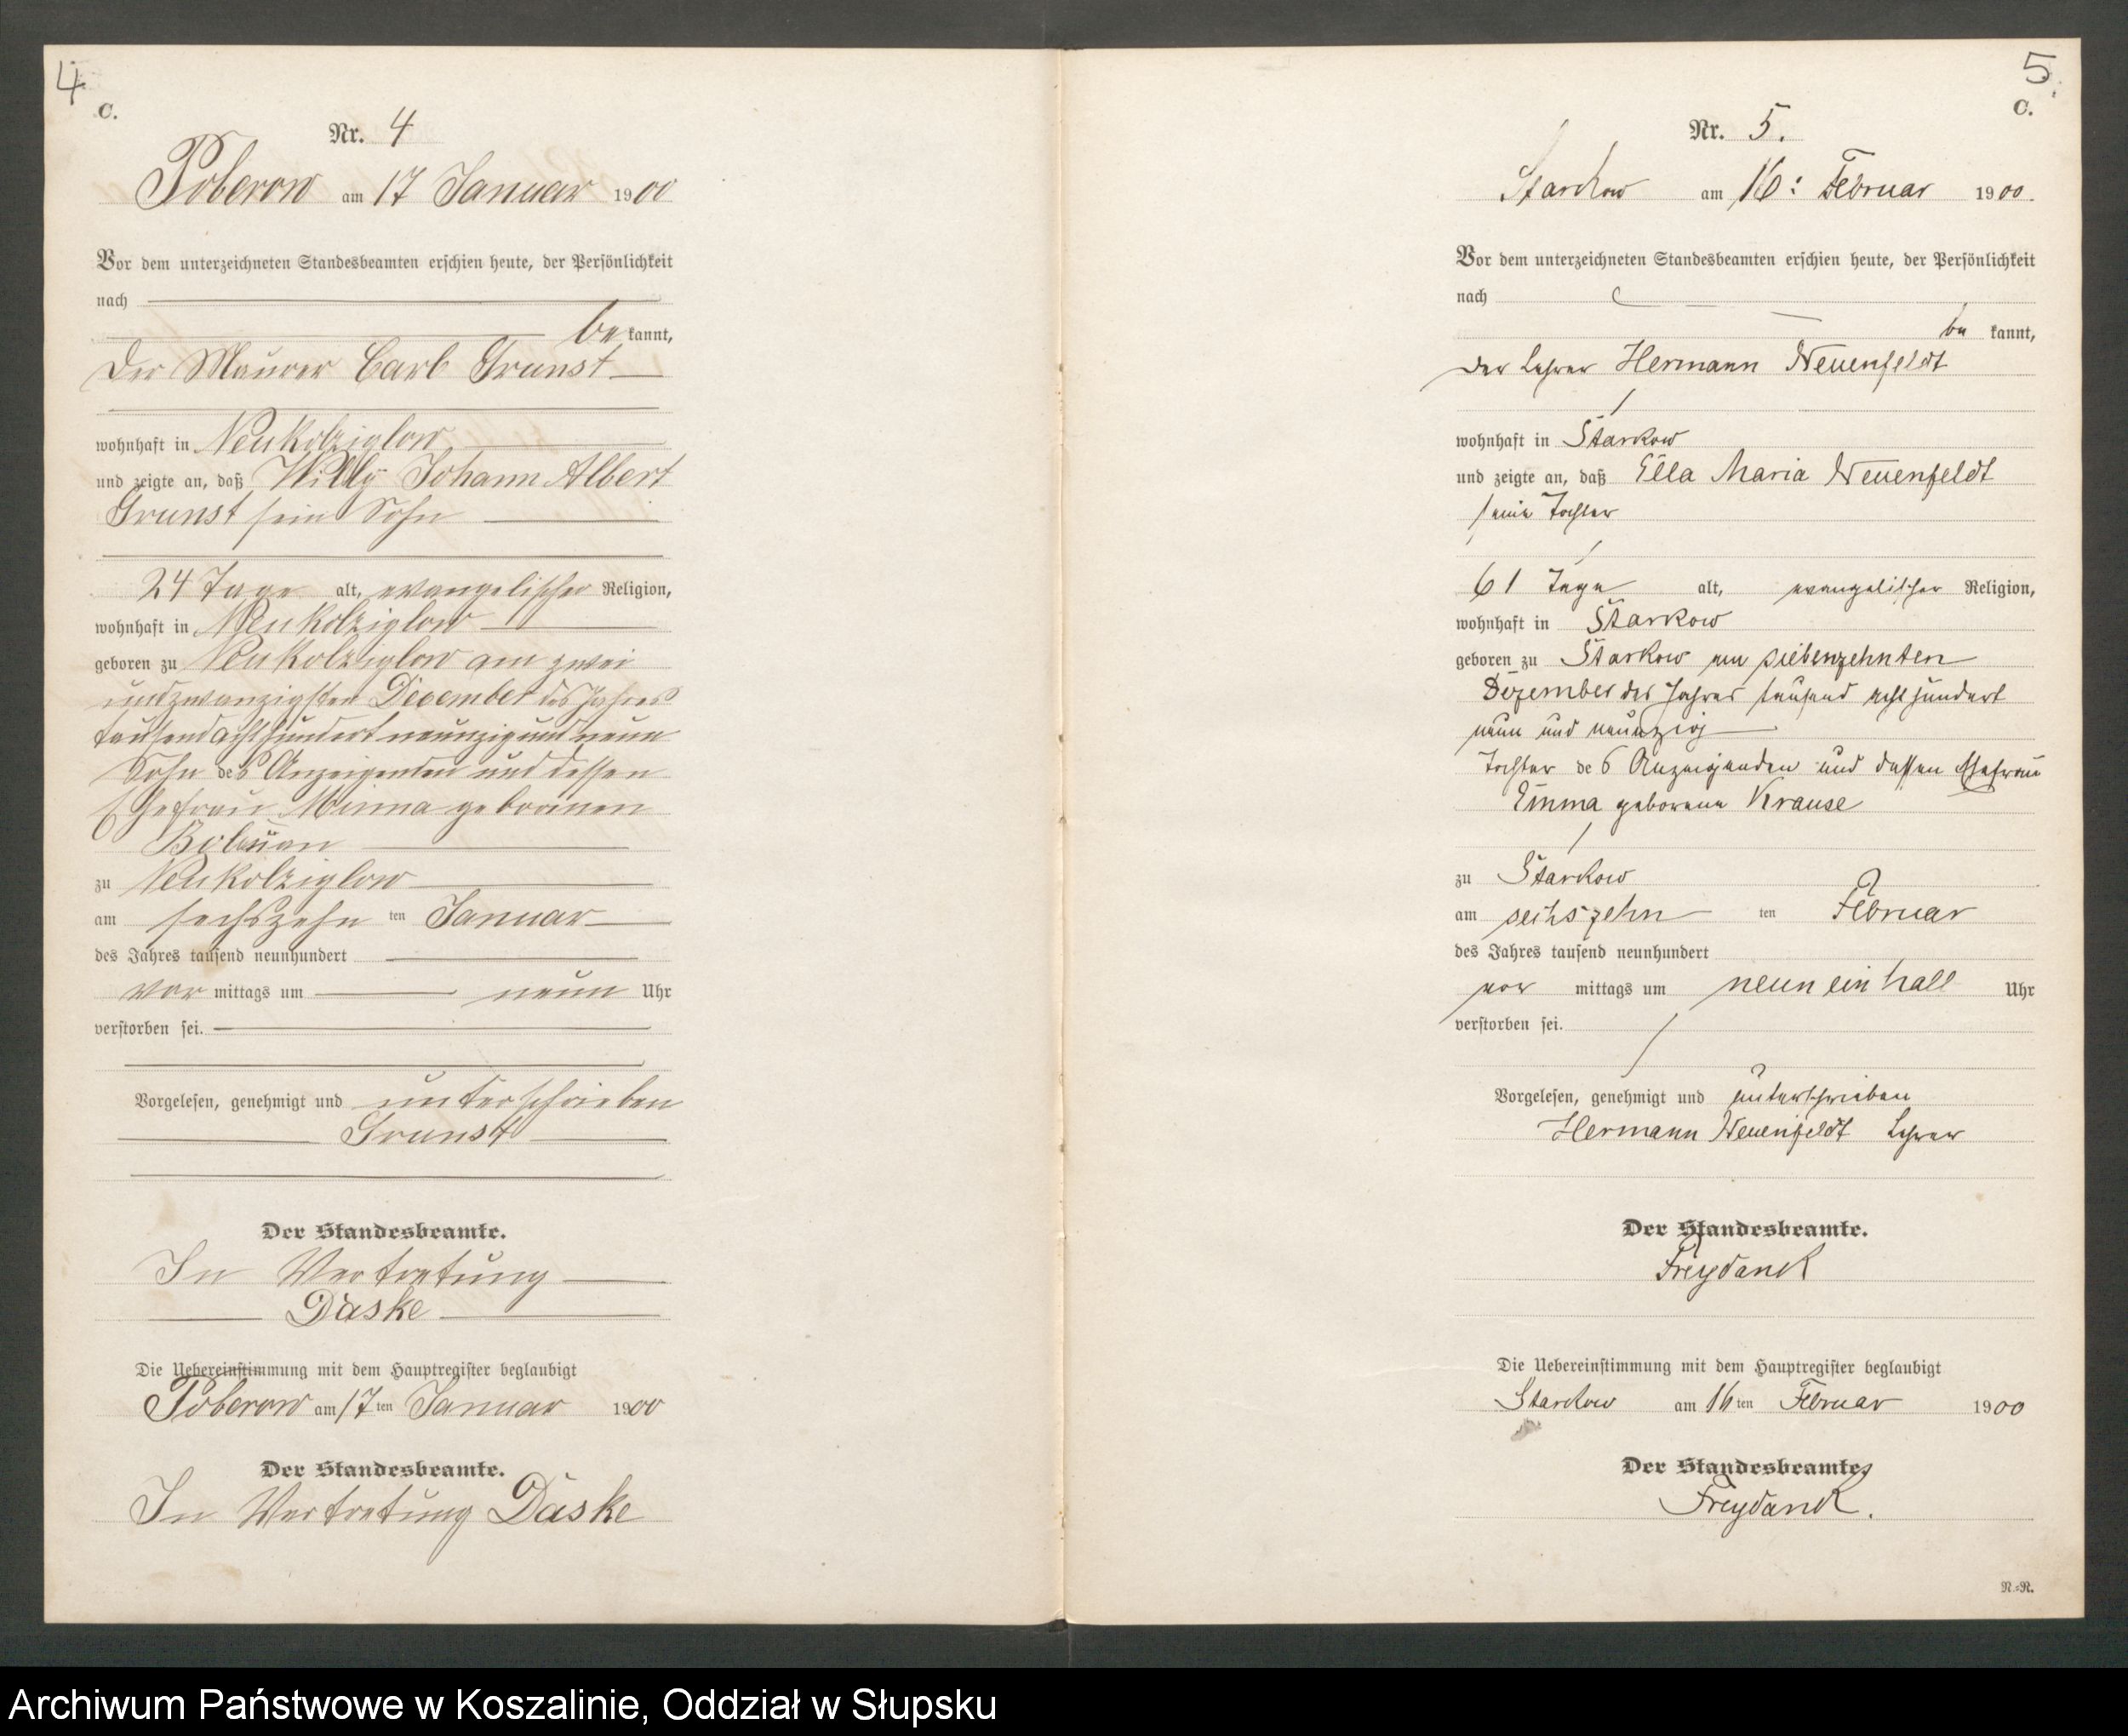 4
C.
Nr. 4
Poberow am 17 Januar 1900
Vor dem unterzeichneten Standesbeamten erschien heute, der Persönlichkeit
nach
be kannt,
der Maurer Carl Grunst
wohnhaft in Neukolziglow
und zeigte an, daß Willy Johann Albert
Grunst sein Sohn
24 Tage alt, evangelischer Religion,
wohnhaft in Neukolziglow
geboren zu Neukolziglow am zwei
undzwanzigsten December des Jahres
tausendachthundert neunzigund neun
Sohn des Anzeigenden und dessen
Ehefrau Minna geborenen
zu Neukolziglow
am sechszehn ten Januar
des Jahres tausend neunhundert
Vor mittags um neun Uhr
verstorben sei.
Vorgelesen, genehmigt und unterschrieben
Grunst
Der Standesbeamte.
In Vertretung
Daske
Die Uebereinstimmung mit dem Hauptregister beglaubigt
Poberow am 17ten Januar 1900
Der Standesbeamte.
In Vertretung Daske
5
C.
Nr. 5.
Starckow am 16: Februar 1900.
Vor dem unterzeichneten Standesbeamten erschien heute, der Persönlichkeit
nach
be kannt,
der Lehrer Hermann Neuenfeldt
wohnhaft in Starkow
und zeigte an, daß Ella Maria Neuenfeldt
seine Tochter
61 Tage alt, evangelischer Religion,
wohnhaft in Starkow
geboren zu Starkow am siebenzehnten
Dezember des Jahres tausend acht hundert
neun und neunzig
Tochter des Anzeigenden und dessen Ehefrau
Emma geborene Krause
zu Starkow
am sechszehn ten Februar
des Jahres tausend neunhundert
vor mittags um neun ein halb Uhr
verstorben sei.
Vorgelesen, genehmigt und unterschrieben
Hermann Neuenfeldt Lehrer
Der Standesbeamte.
Freydank
Die Uebereinstimmung mit dem Hauptregister beglaubigt
Starckow am 16ten Februar 1900
Der Standesbeamte.
Freydank.
N.=N.
Archiwum Państwowe w Koszalinie, Oddział w Słupsku